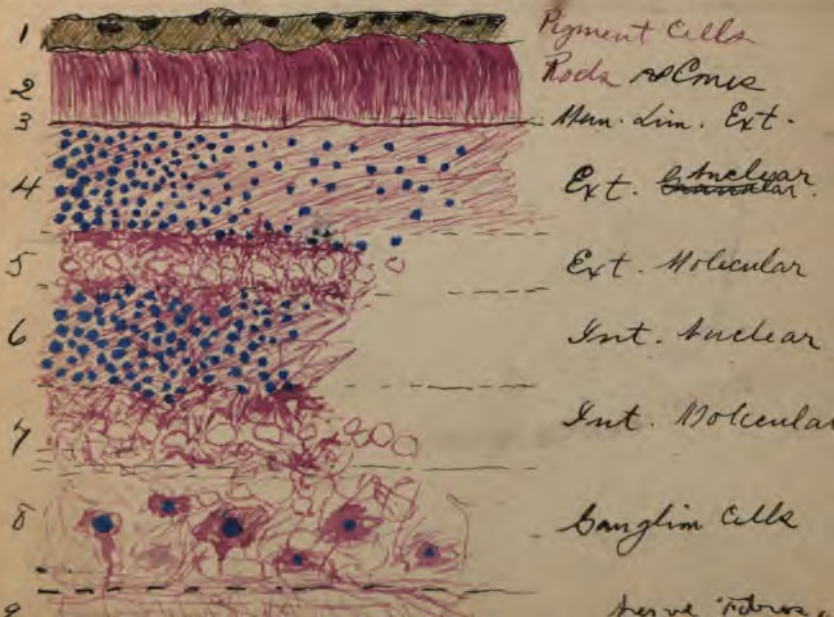 1 Pigment Cells
2 Rods & Cones
3 Mem. Lim. Ext.
4 Ext. Granular. Nuclear
5 Ext. Molecular
6 Int. Nuclear
7 Int. Molecular
8 Ganglion Cells
9 Nerve Fibres